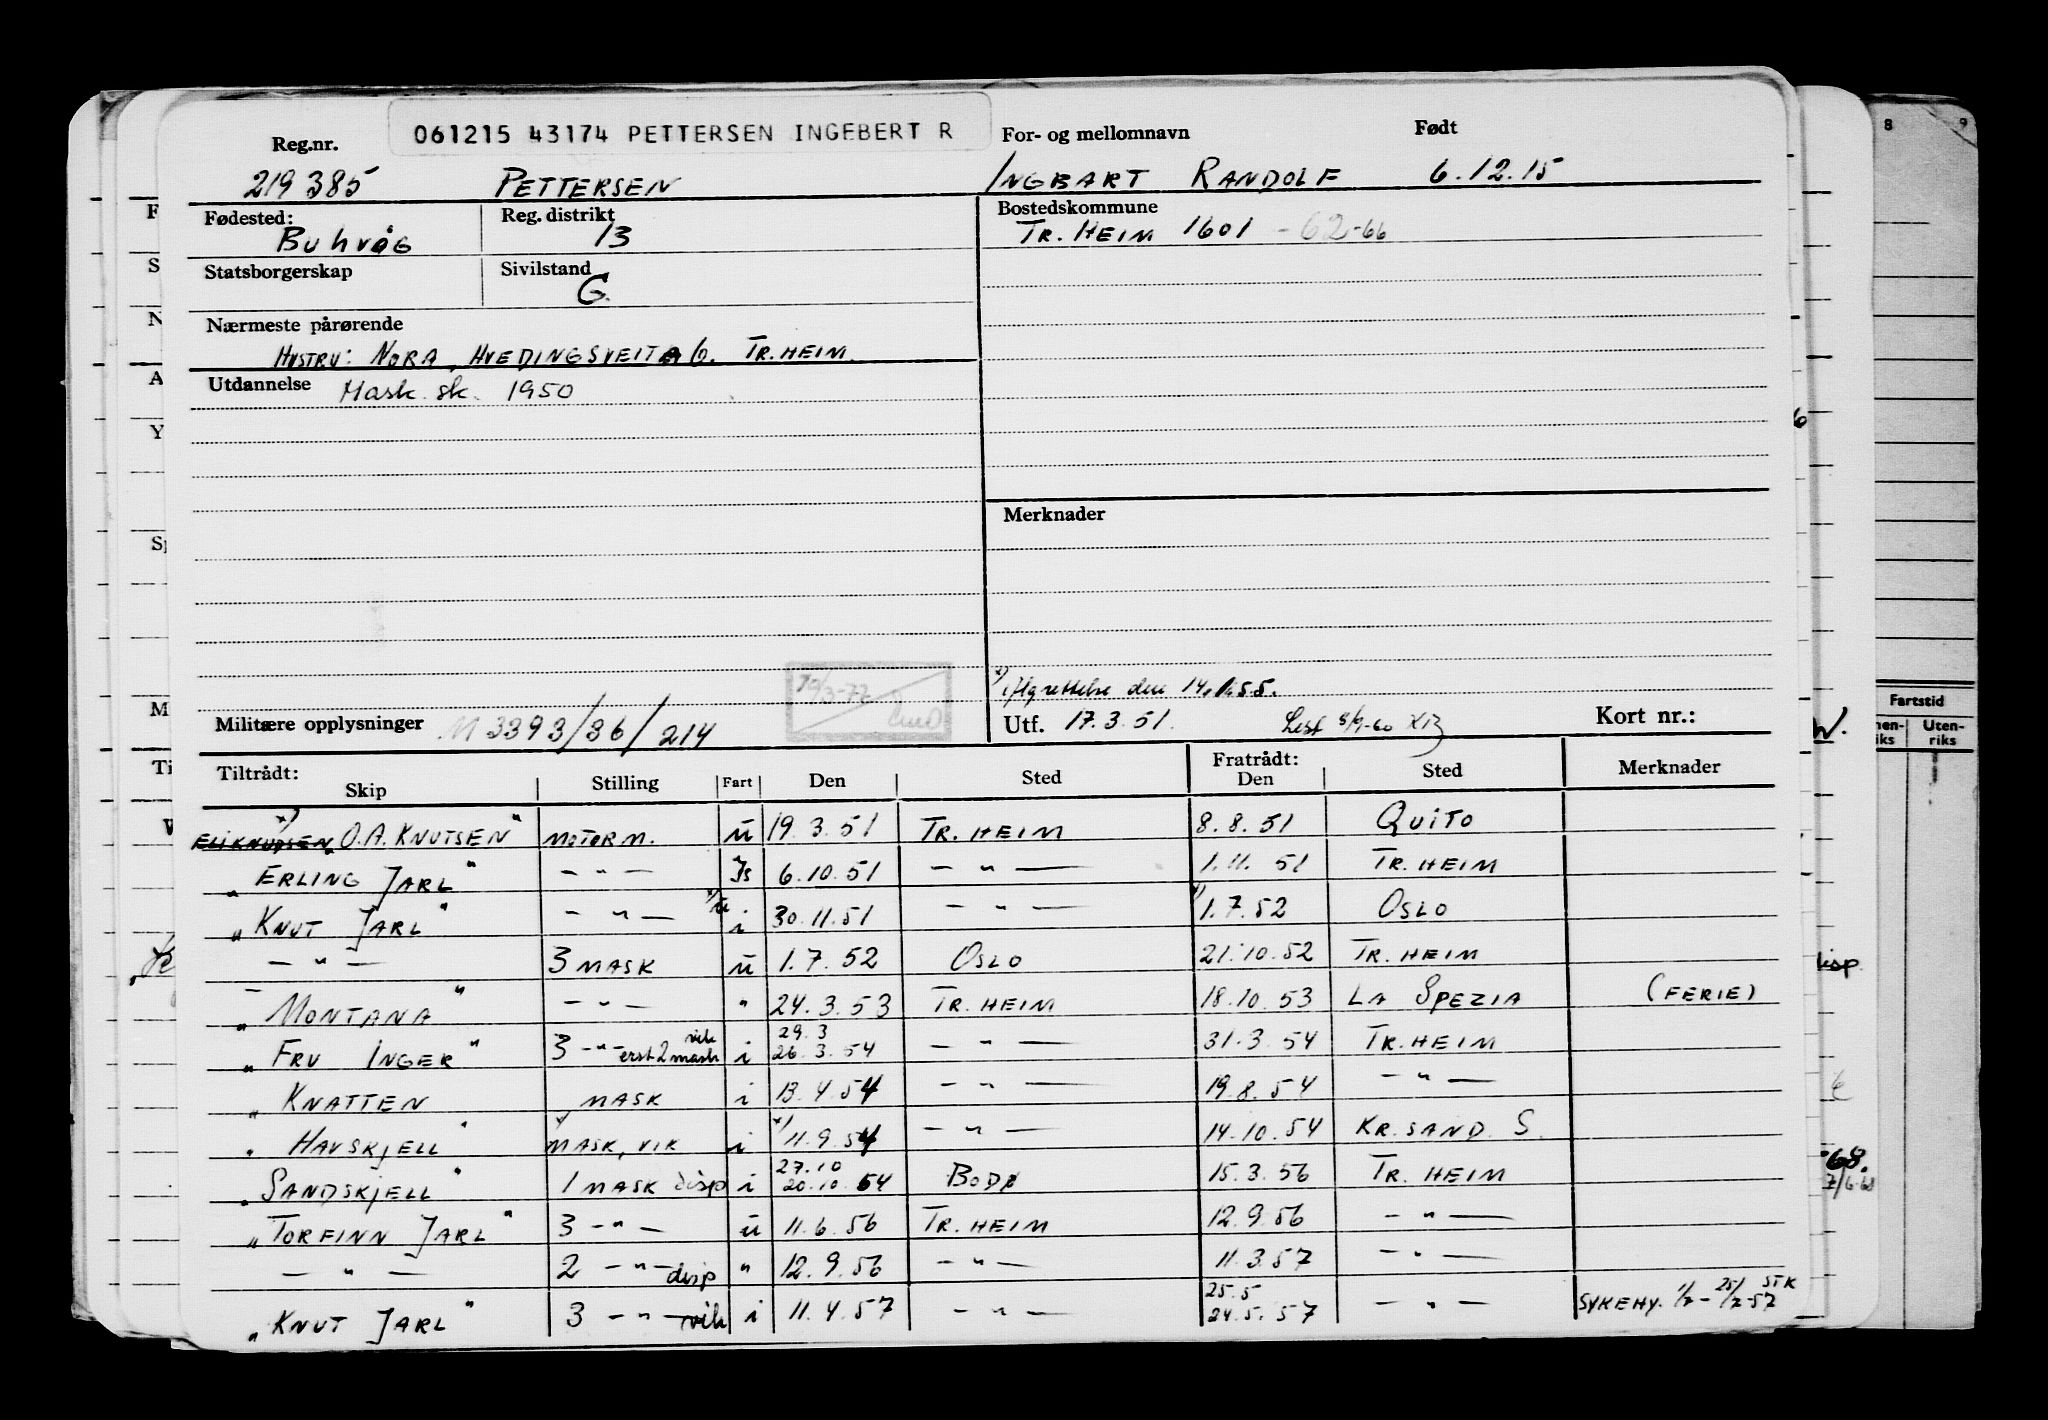 061215 43174 PETTERSEN INGEBERT R
Reg.nr. For- og mellomnavn Født
219385 PETTERSEN INGBART RANDOLF 6.12.15
Fødested: Reg. distrikt Bostedskommune
BUHVÅG 13 TR. HEIM 1601 - 62-66
Statsborgerskap Sivilstand
G.
Nærmeste pårørende
HUSTRU: NORA, HVEDINGSVEITA 6. TR. HEIM.
Utdannelse Mask. sk. 1950
Merknader
x) iflg rettelse den
Militære opplysninger M 3393/36/214 Utf. 17.3.51. Lest 8/9-60 Kort nr.:
Tiltrådt: Fratrådt:
Skip Stilling Fart Den Sted Den Sted Merknader
x) O.A. KNUTSEN" MOTORM. u 19.3.51 TR. HEIM 8.8.51 QUITO
"ERLING JARL" — " — Is 6.10.51 — " — 1.11.51 TR. HEIM
"KNUT JARL" — " — x)u i 30.11.51 — " — x) 1.7.52 OSLO
— " — 3 MASK u 1.7.52 OSLO 21.10.52 TR. HEIM
"MONTANA" — " — " 24.3.53 TR. HEIM 18.10.53 LA SPEZIA (FERIE)
"FRU INGER" 3 — " — vik erst 2 mask i 29.3 26.3.54 — " — 31.3.54 TR. HEIM
"KNATTEN MASK i 13.4.54 — " — 19.8.54 — " —
"HAVSKJELL" MASK, VIK i x) 11.9.54 — " — 14.10.54 KR. SAND. S.
"SANDSKJELL" 1 MASK disp i 27.10 20.10.54 BODØ 15.3.56 TR. HEIM
"TORFINN JARL" 3 — " — u 11.6.56 TR. HEIM 12.9.56 — " —
— " — 2 — " — disp " 12.9.56 — " — 11.3.57 — " —
"KNUT JARL" 3 — " — vik i 11.4.57 — " — 25.5 24.5.57 — " — SYKEHY.
8 9
Fartstid
Uten-
riks